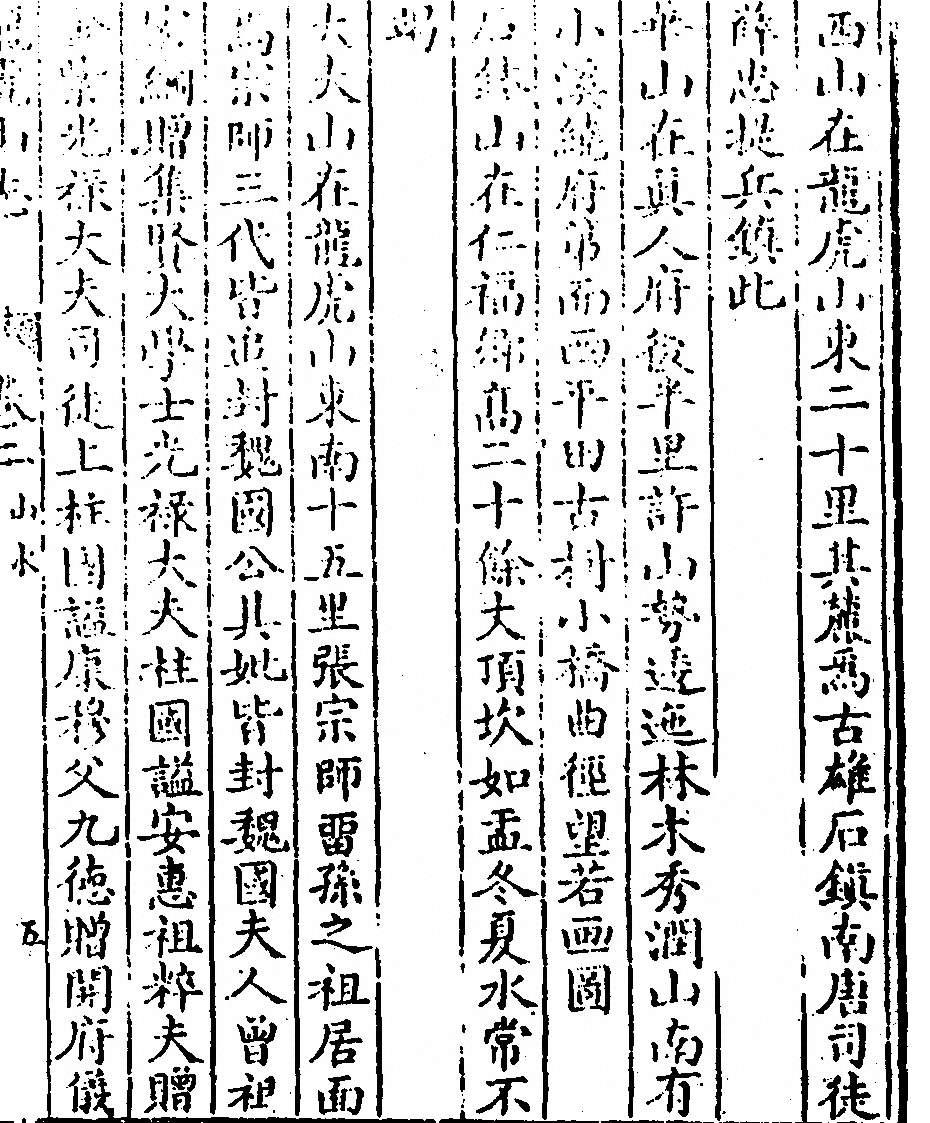 西山在龍虎山東二十里其麓爲古雄石鎮南唐司徒
薛忠提兵鎮此
華山在眞人府後半里許山勢逶迤林木秀潤山南有
小溪繞府第而西平田古樹小橋曲徑望若画圖
山在仁福鄉高二十餘丈頂坎如盂冬夏水常不
竭
大大山在龍虎山東南十五里張宗師留孫之祖居面
爲宗師三代皆追封魏國公其妣皆封魏國夫人曾祖
宏綱贈集賢大學士光祿大夫柱國諡安惠祖粹夫贈
紫光祿大夫司徒上柱國諡康穆父九德贈開府儀
龍虎山志 卷二 山水 五